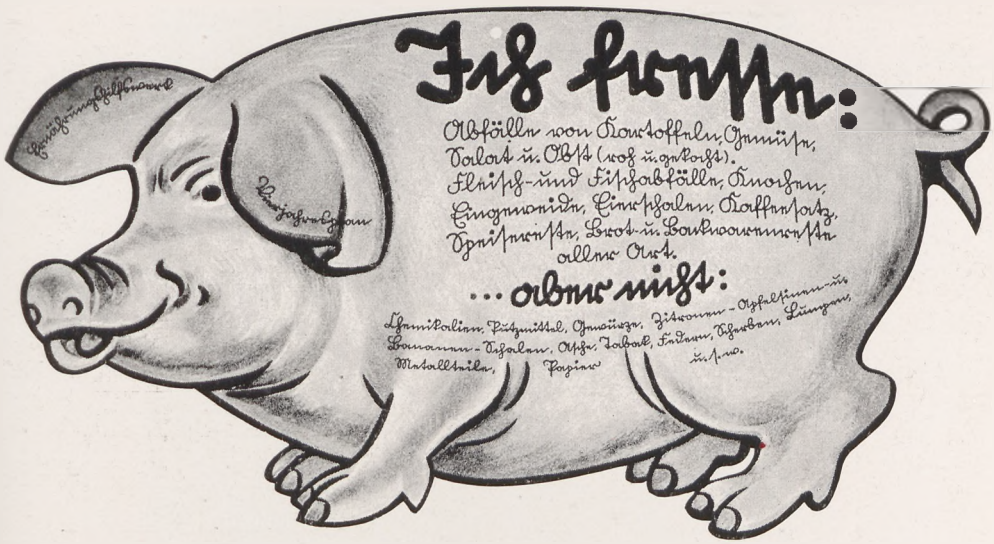 Ernährungshilfswerk
Vierjahresplan
Ich fresse:
Abfälle von Kartoffeln, Gemüse,
Salat u. Obst (roh u. gekocht).
Fleisch- und Fischabfälle, Knochen,
Eingeweide, Eierschalen, Kaffeesatz,
Speisereste, Brot- u. Backwarenreste
aller Art.
...aber nicht:
Chemikalien, Putzmittel, Gewürze, Zitronen- Apfelsinen- u.
Bananen-Schalen, Asche, Tabak, Federn, Scherben, Lumpen,
Metallteile, Papier u.s.w.